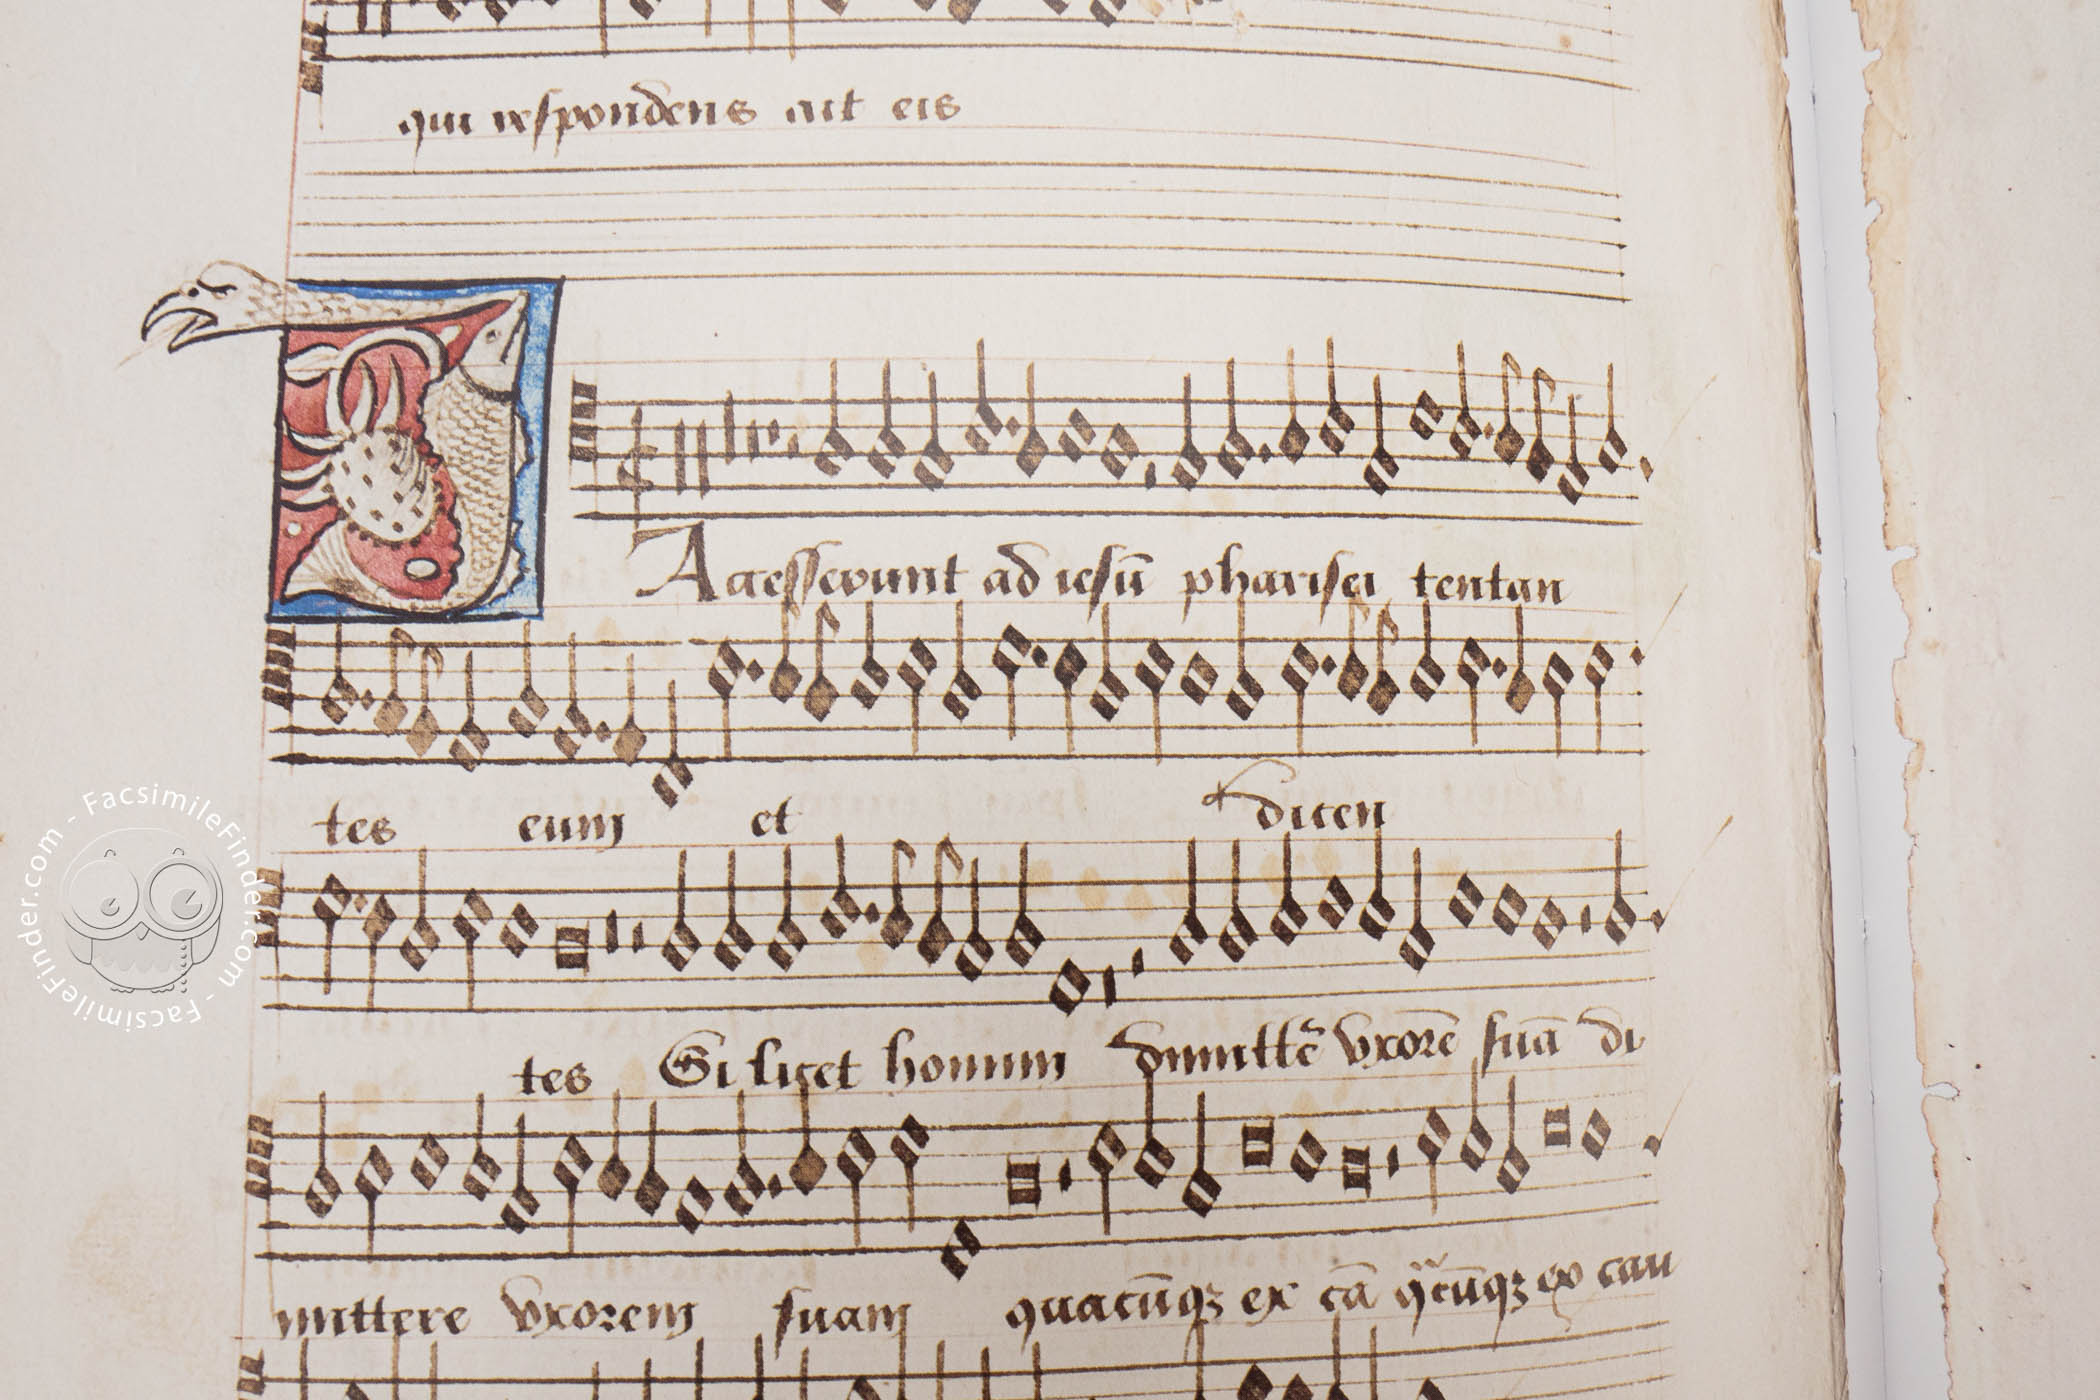 qui respondens ait eis
Accesserunt ad iesū pharisei tentan
tes eum et dicen
tes Si licet homini dimittē vxorē suā di
mittere vxorem suam quacūqꝫ ex cā qͣcūqꝫ ex cau
FacsimileFinder.com - FacsimileFinder.com - FacsimileFinder.com